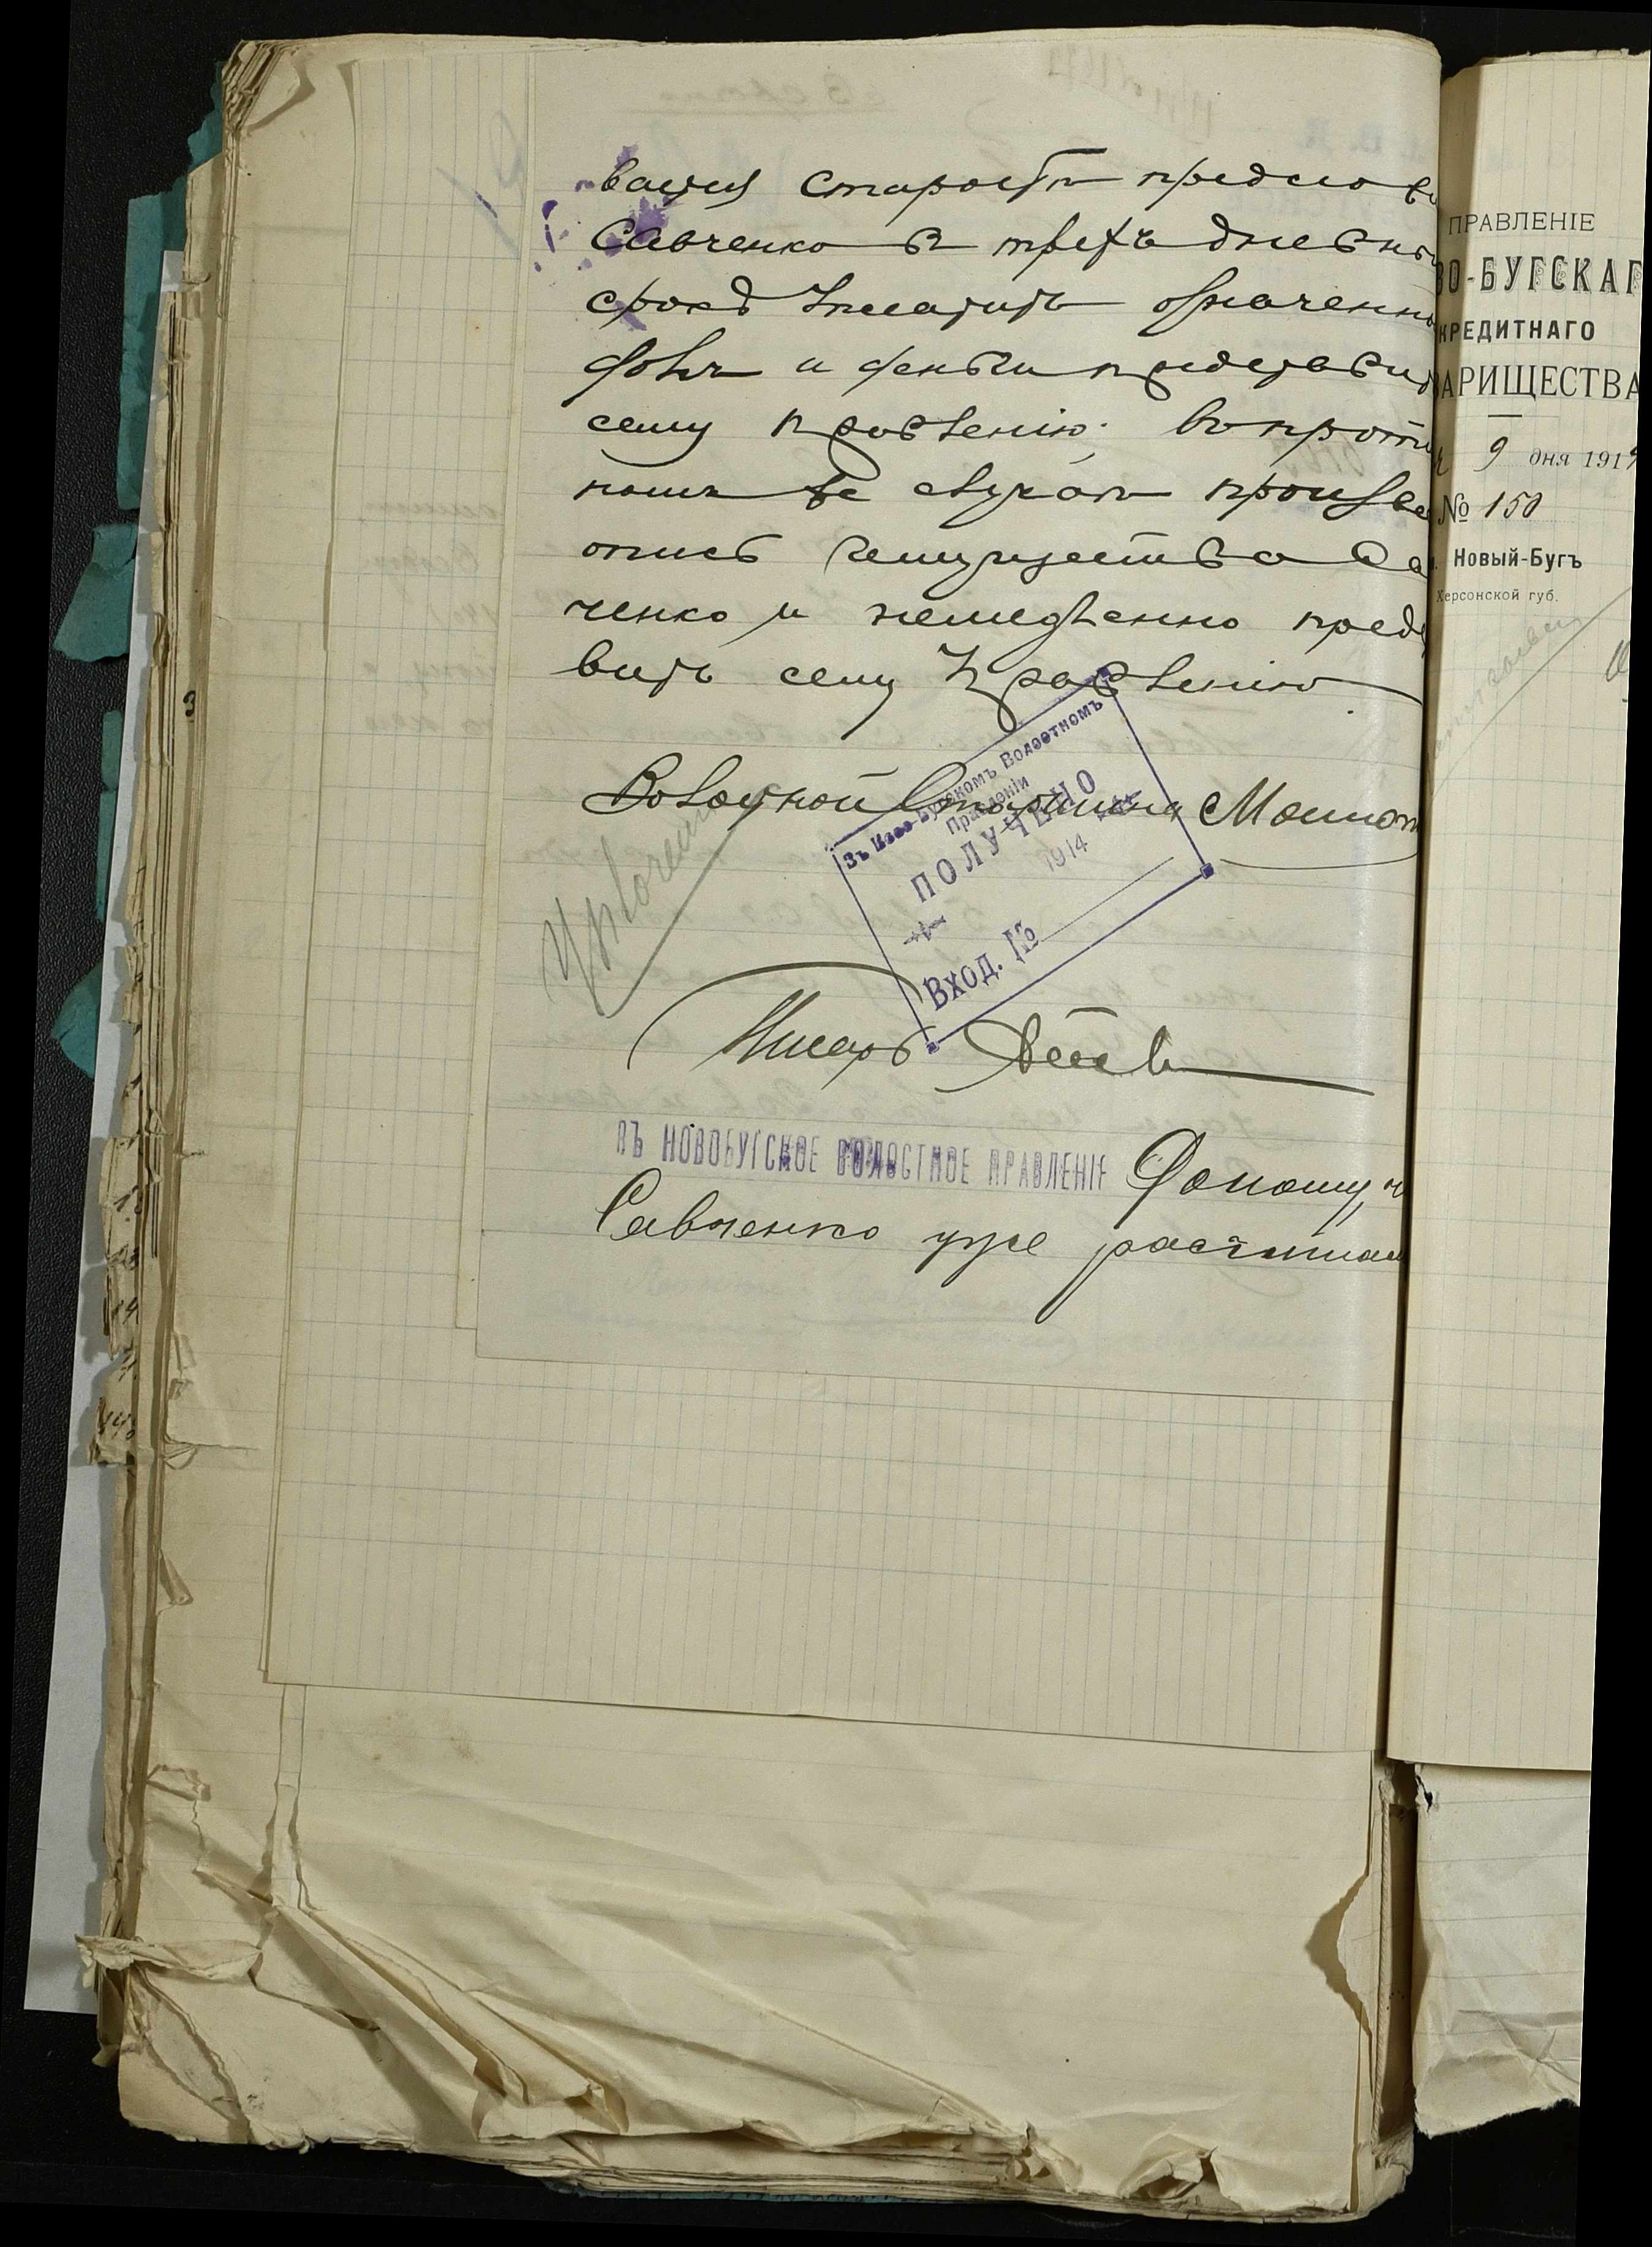 вашия старости предлож
Савченко в трехъ дневны
срокъ уплатить означенны
долгъ и деньги представит
сему правленію. въ против
номъ же случаѣ произве
опись имущества Сав
ченко и немедленно предс
вить сему Правленію
Волостной Старшина
Въ Ново-Бугскомъ Волостномъ
Правленіи
ПОЛУЧЕНО
1914
Вход. №
Писарь
ВЪ НОВОБУГСКОЕ ВОЛОСТНОЕ ПРАВЛЕНІЕ Доношу, ч
Савченко уже
ПРАВЛЕНІЕ
ВО-БУГСКАГ
КРЕДИТНАГО
АРИЩЕСТВА
9 дня 1914
№ 150
Новый-Бугъ
Херсонской губ.